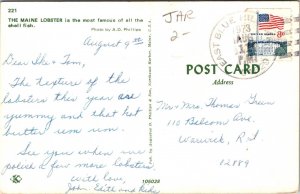 221
THE MAINE LOBSTER is the most famous of all the
shell fish.
Photo by A.D. Phillips
JAR
2-
August 9
EAST BLUE HILL
POST CARD
Address
Dear Ike & Tom,
The texture of the
lobsters this year are
yummy and that hot
butter um um.
See you when we
polish a few more lobsters
with love,
John Edith and Kids
Mr & Mrs. Thomas Green
110 Belcom Ave.
Warwick, R.I
12889
K
106028